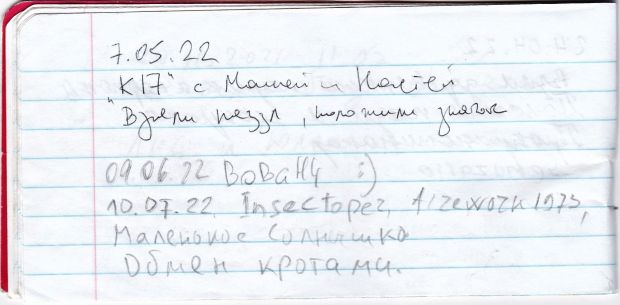 7.05.22
"К17" с Машей и Настей
"Взяли пазл, положили значок
09.06.22 ВоВаНЧ :)
10.07.22. Insectopez, firework1973,
Маленькое Солнышко
Обмен кротами.